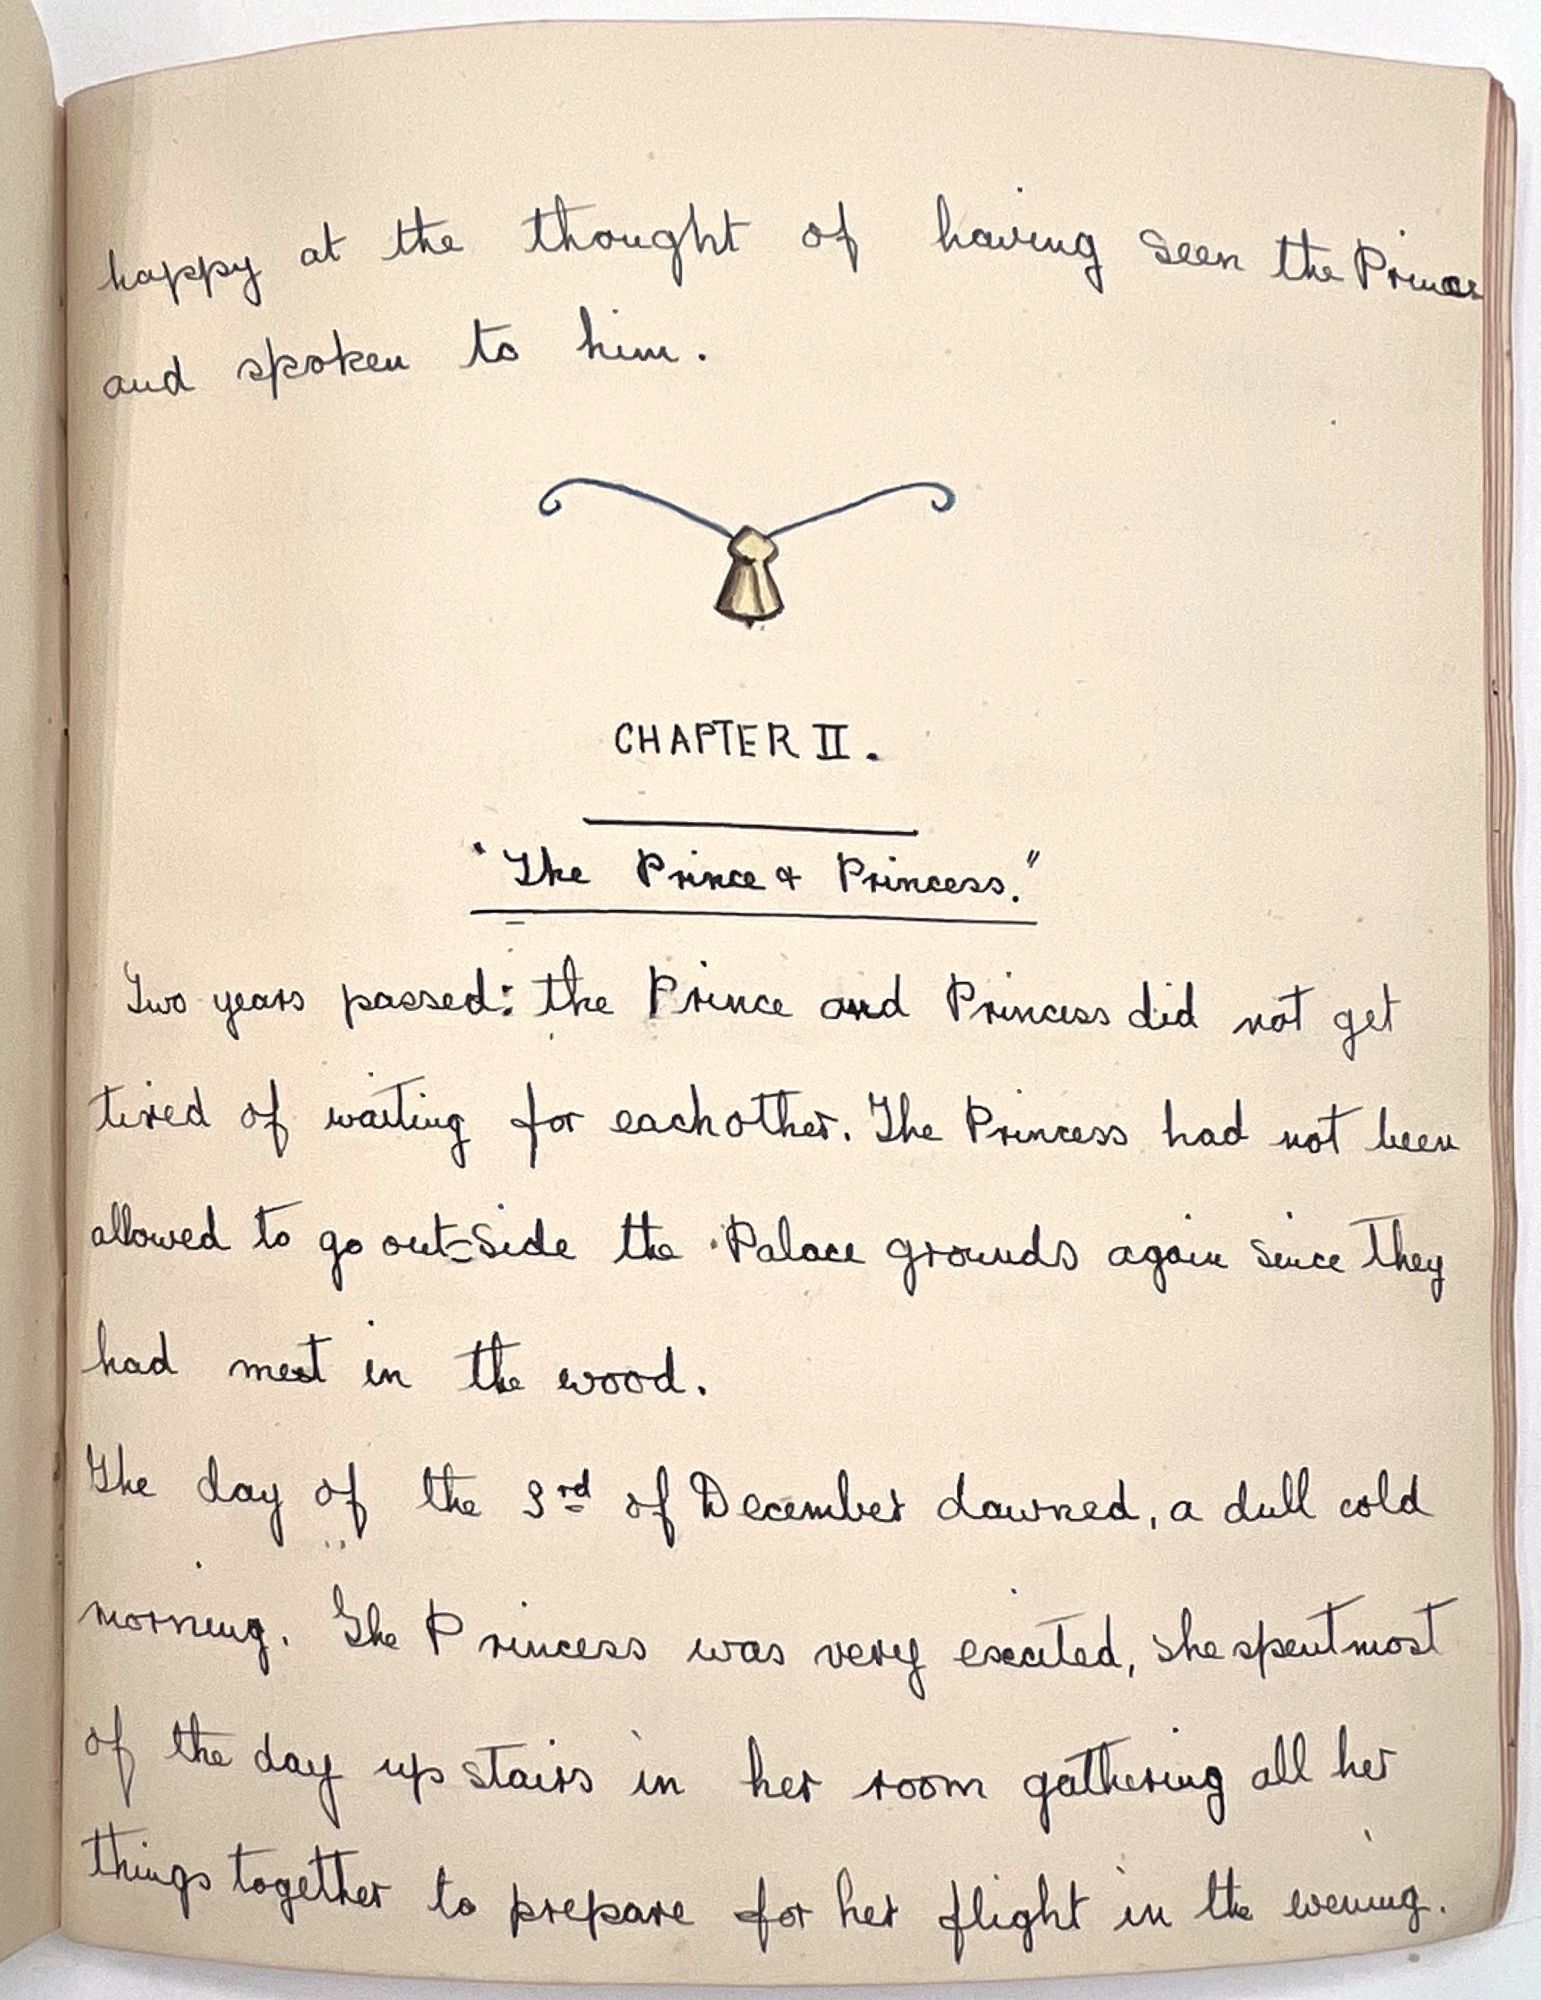 happy at the thought of having seen the Prince
and spoken to him.
CHAPTER II.
"The Prince & Princess."
Two years passed: the Prince and Princess did not get
tired of waiting for eachother. The Princess had not been
allowed to go out-side the Palace grounds again since they
had met in the wood.
The day of the 3rd of December dawned, a dull cold
morning. The Princess was very excited, she spent most
of the day up stairs in her room gathering all her
things together to prepare for her flight in the evening.